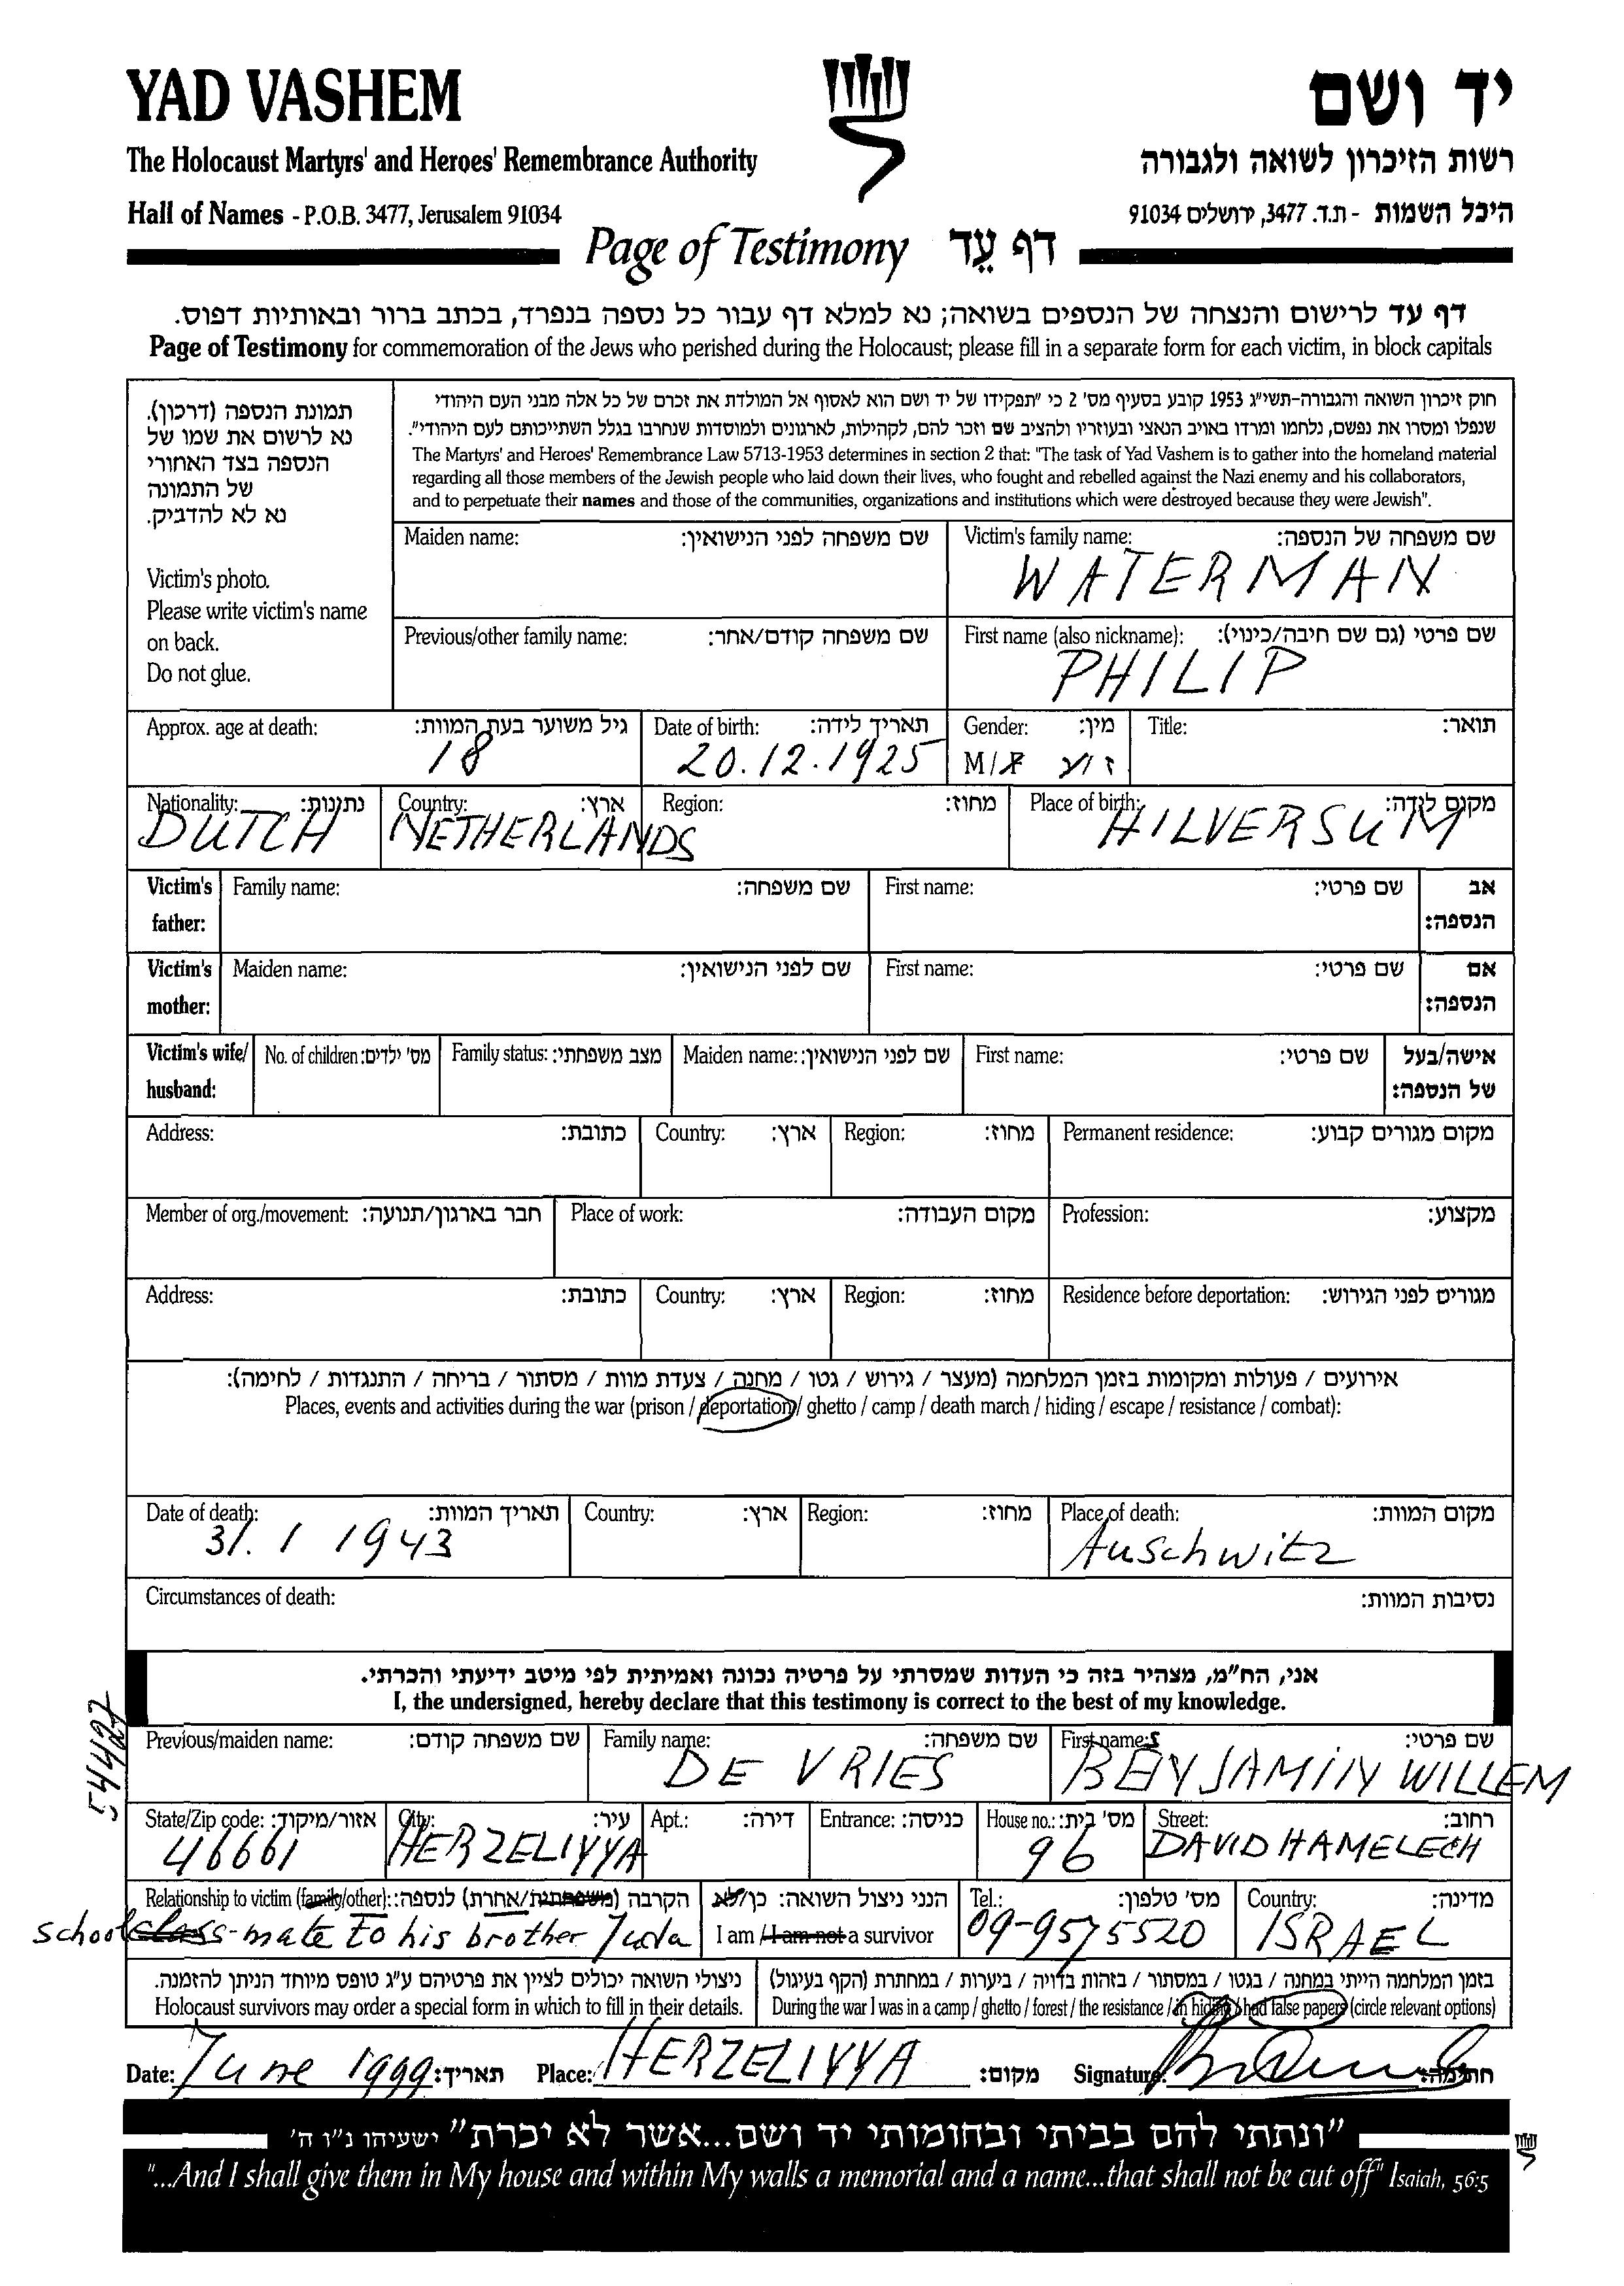 YAD VASHEM
יד ושם
The Holocaust Martyrs' and Heroes' Remembrance Authority
רשות הזיכרון לשואה ולגבורה
Hall of Names - P.O.B. 3477, Jerusalem 91034
היכל השמות - ת.ד. 3477, ירושלים 91034
Page of Testimony דף עֵד
דף עד לרישום והנצחה של הנספים בשואה; נא למלא דף עבור כל נספה בנפרד, בכתב ברור ובאותיות דפוס.
Page of Testimony for commemoration of the Jews who perished during the Holocaust; please fill in a separate form for each victim, in block capitals
תמונת הנספה (דרכון).
נא לרשום את שמו של
הנספה בצד האחורי
של התמונה
נא לא להדביק.
Victim's photo.
Please write victim's name
on back.
Do not glue.
חוק זיכרון השואה והגבורה-תשי"ג 1953 קובע בסעיף מס' 2 כי "תפקידו של יד ושם הוא לאסוף אל המולדת את זכרם של כל אלה מבני העם היהודי
שנפלו ומסרו את נפשם, נלחמו ומרדו באויב הנאצי ובעוזריו ולהציב שם וזכר להם, לקהילות, לארגונים ולמוסדות שנחרבו בגלל השתייכותם לעם היהודי".
The Martyrs' and Heroes' Remembrance Law 5713-1953 determines in section 2 that: "The task of Yad Vashem is to gather into the homeland material
regarding all those members of the Jewish people who laid down their lives, who fought and rebelled against the Nazi enemy and his collaborators,
and to perpetuate their names and those of the communities, organizations and institutions which were destroyed because they were Jewish".
Maiden name: שם משפחה לפני הנישואין: Victim's family name: שם משפחה של הנספה:
WATERMAN
Previous/other family name: שם משפחה קודם/אחר: First name (also nickname): שם פרטי (גם שם חיבה/כינוי):
PHILIP
Approx. age at death: גיל משוער בעת המוות: Date of birth: תאריך לידה: Gender: מין: Title: תואר:
18 20.12.1925 M/F ז/נ
Nationality: נתינות: Country: ארץ: Region: מחוז: Place of birth: מקום לידה:
DUTCH NETHERLANDS HILVERSUM
Victim's Family name: שם משפחה: First name: שם פרטי: אב
father: הנספה:
Victim's Maiden name: שם לפני הנישואין: First name: שם פרטי: אם
mother: הנספה:
Victim's wife/ No. of children: מס' ילדים: Family status: מצב משפחתי: Maiden name: שם לפני הנישואין: First name: שם פרטי: אישה/בעל
husband: של הנספה:
Address: כתובת: Country: ארץ: Region: מחוז: Permanent residence: מקום מגורים קבוע:
Member of org./movement: חבר בארגון/תנועה: Place of work: מקום העבודה: Profession: מקצוע:
Address: כתובת: Country: ארץ: Region: מחוז: Residence before deportation: מגורים לפני הגירוש:
אירועים / פעולות ומקומות בזמן המלחמה (מעצר / גירוש / גטו / מחנה / צעדת מוות / מסתור / בריחה / התנגדות / לחימה):
Places, events and activities during the war (prison / deportation / ghetto / camp / death march / hiding / escape / resistance / combat):
Date of death: תאריך המוות: Country: ארץ: Region: מחוז: Place of death: מקום המוות:
31. 1 1943 Auschwitz
Circumstances of death: נסיבות המוות:
אני, הח"מ, מצהיר בזה כי העדות שמסרתי על פרטיה נכונה ואמיתית לפי מיטב ידיעתי והכרתי.
I, the undersigned, hereby declare that this testimony is correct to the best of my knowledge.
54427
Previous/maiden name: שם משפחה קודם: Family name: שם משפחה: First name:s שם פרטי:
DE VRIES BENJAMIN WILLEM
State/Zip code: אזור/מיקוד: City: עיר: Apt.: דירה: Entrance: כניסה: House no.: מס' בית: Street: רחוב:
46661 HERZELIYYA 96 DAVID HAMELECH
Relationship to victim (family/other): הקרבה (משפחתית/אחרת) לנספה: הנני ניצול השואה: כן/לא Tel.: מס' טלפון: Country: מדינה:
school class-mate to his brother Juda I am / I am not a survivor 09-9575520 ISRAEL
ניצולי השואה יכולים לציין את פרטיהם ע"ג טופס מיוחד הניתן להזמנה. בזמן המלחמה הייתי במחנה / בגטו / במסתור / בזהות בדויה / ביערות / במחתרת (הקף בעיגול)
Holocaust survivors may order a special form in which to fill in their details. During the war I was in a camp / ghetto / forest / the resistance / in hiding / had false papers (circle relevant options)
Date: June 1999 תאריך: Place: HERZELIYYA מקום: Signature: חתימה:
"ונתתי להם בביתי ובחומותי יד ושם...אשר לא יכרת" ישעיהו נ"ו ה'
"...And I shall give them in My house and within My walls a memorial and a name...that shall not be cut off" Isaiah, 56:5